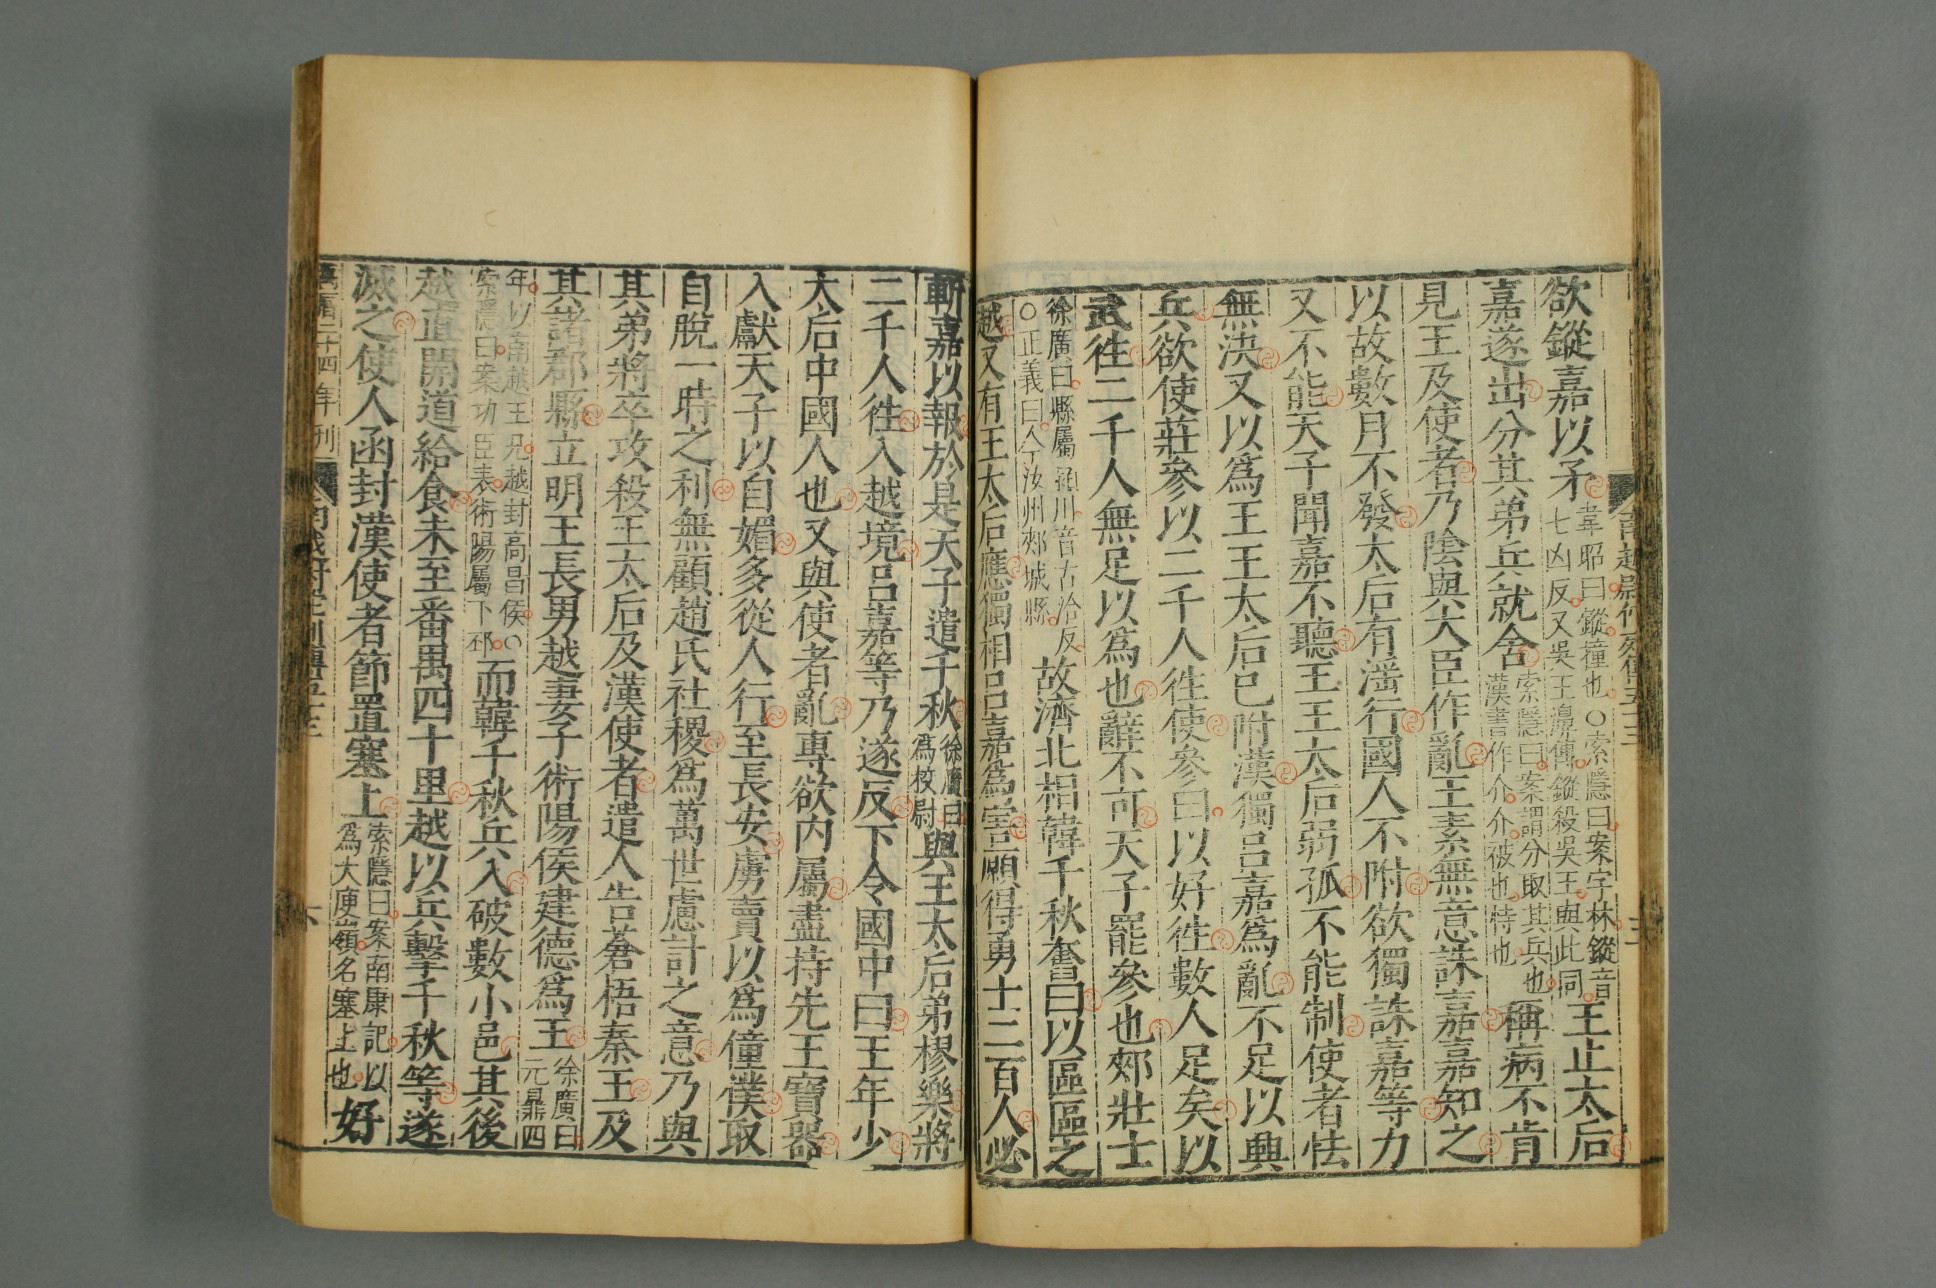 欲鏦嘉以矛韋昭曰鏦撞也○索隱曰案字林鏦音七凶反又吳王濞傳鏦殺吳王與此同王止太后
嘉遂出分其弟兵就舍索隱曰案謂分取其兵也漢書作介介被也恃也稱病不肯
見王及使者乃陰與大臣作亂王素無意誅嘉嘉知之
以故數月不發太后有淫行國人不附欲獨誅嘉等力
又不能天子聞嘉不聽王王太后弱孤不能制使者怯
無決又以爲王王太后已附漢獨呂嘉爲亂不足以興
兵欲使莊參以二千人徃使參曰以好徃數人足矣以
武徃二千人無足以爲也辭不可天子罷參也郟壯士
徐廣曰縣屬潁川音古洽反○正義曰今汝州郟城縣故濟北相韓千秋奮曰以區區之
越又有王太后應獨相呂嘉爲害願得勇士二百人必
斬嘉以報於是天子遣千秋徐廣曰爲校尉與王太后弟樛樂將
二千人徃入越境呂嘉等乃遂反下令國中曰王年少
太后中國人也又與使者亂專欲内屬盡持先王寶器
入獻天子以自媚多從人行至長安虜賣以爲僮僕取
自脫一時之利無顧趙氏社稷爲萬世慮計之意乃與
其弟將卒攻殺王太后及漢使者遣人告蒼梧秦王及
其諸郡縣立明王長男越妻子術陽侯建德爲王徐廣曰元鼎四
年以南越王兄越封高昌侯○索隱曰案功臣表術陽屬下邳而韓千秋兵入破數小邑其後
越直開道給食未至番禺四十里越以兵擊千秋等遂
滅之使人函封漢使者節置塞上索隱曰案南康記以爲大庾嶺名塞上也好
萬曆二十四年刊